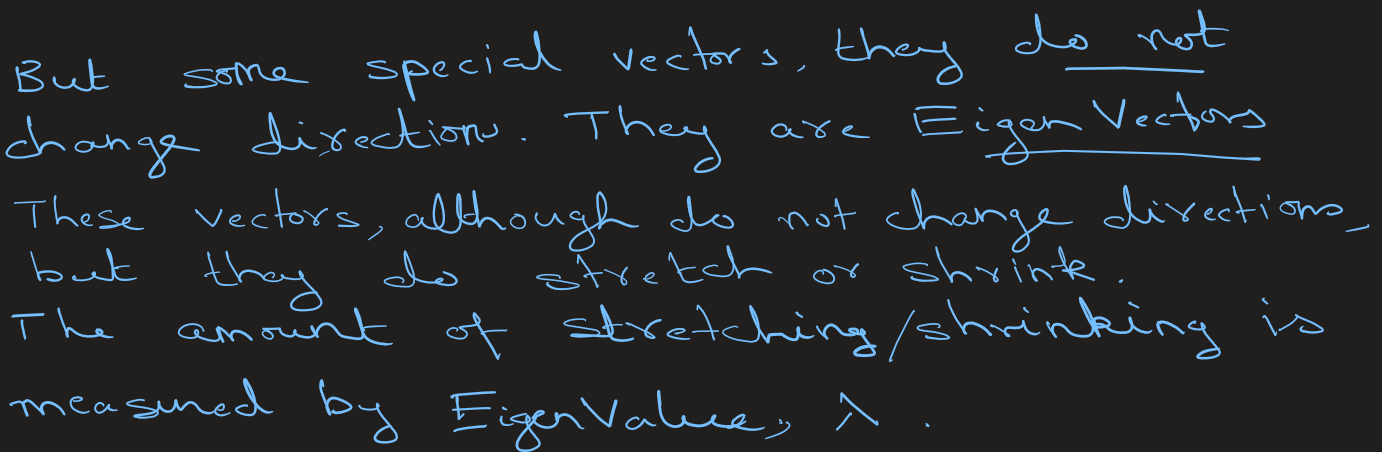 But some special vectors, they do not
change directions. They are Eigen Vectors
These vectors, although do not change directions,
but they do stretch or shrink.
The amount of stretching/shrinking is
measured by EigenValue, λ.